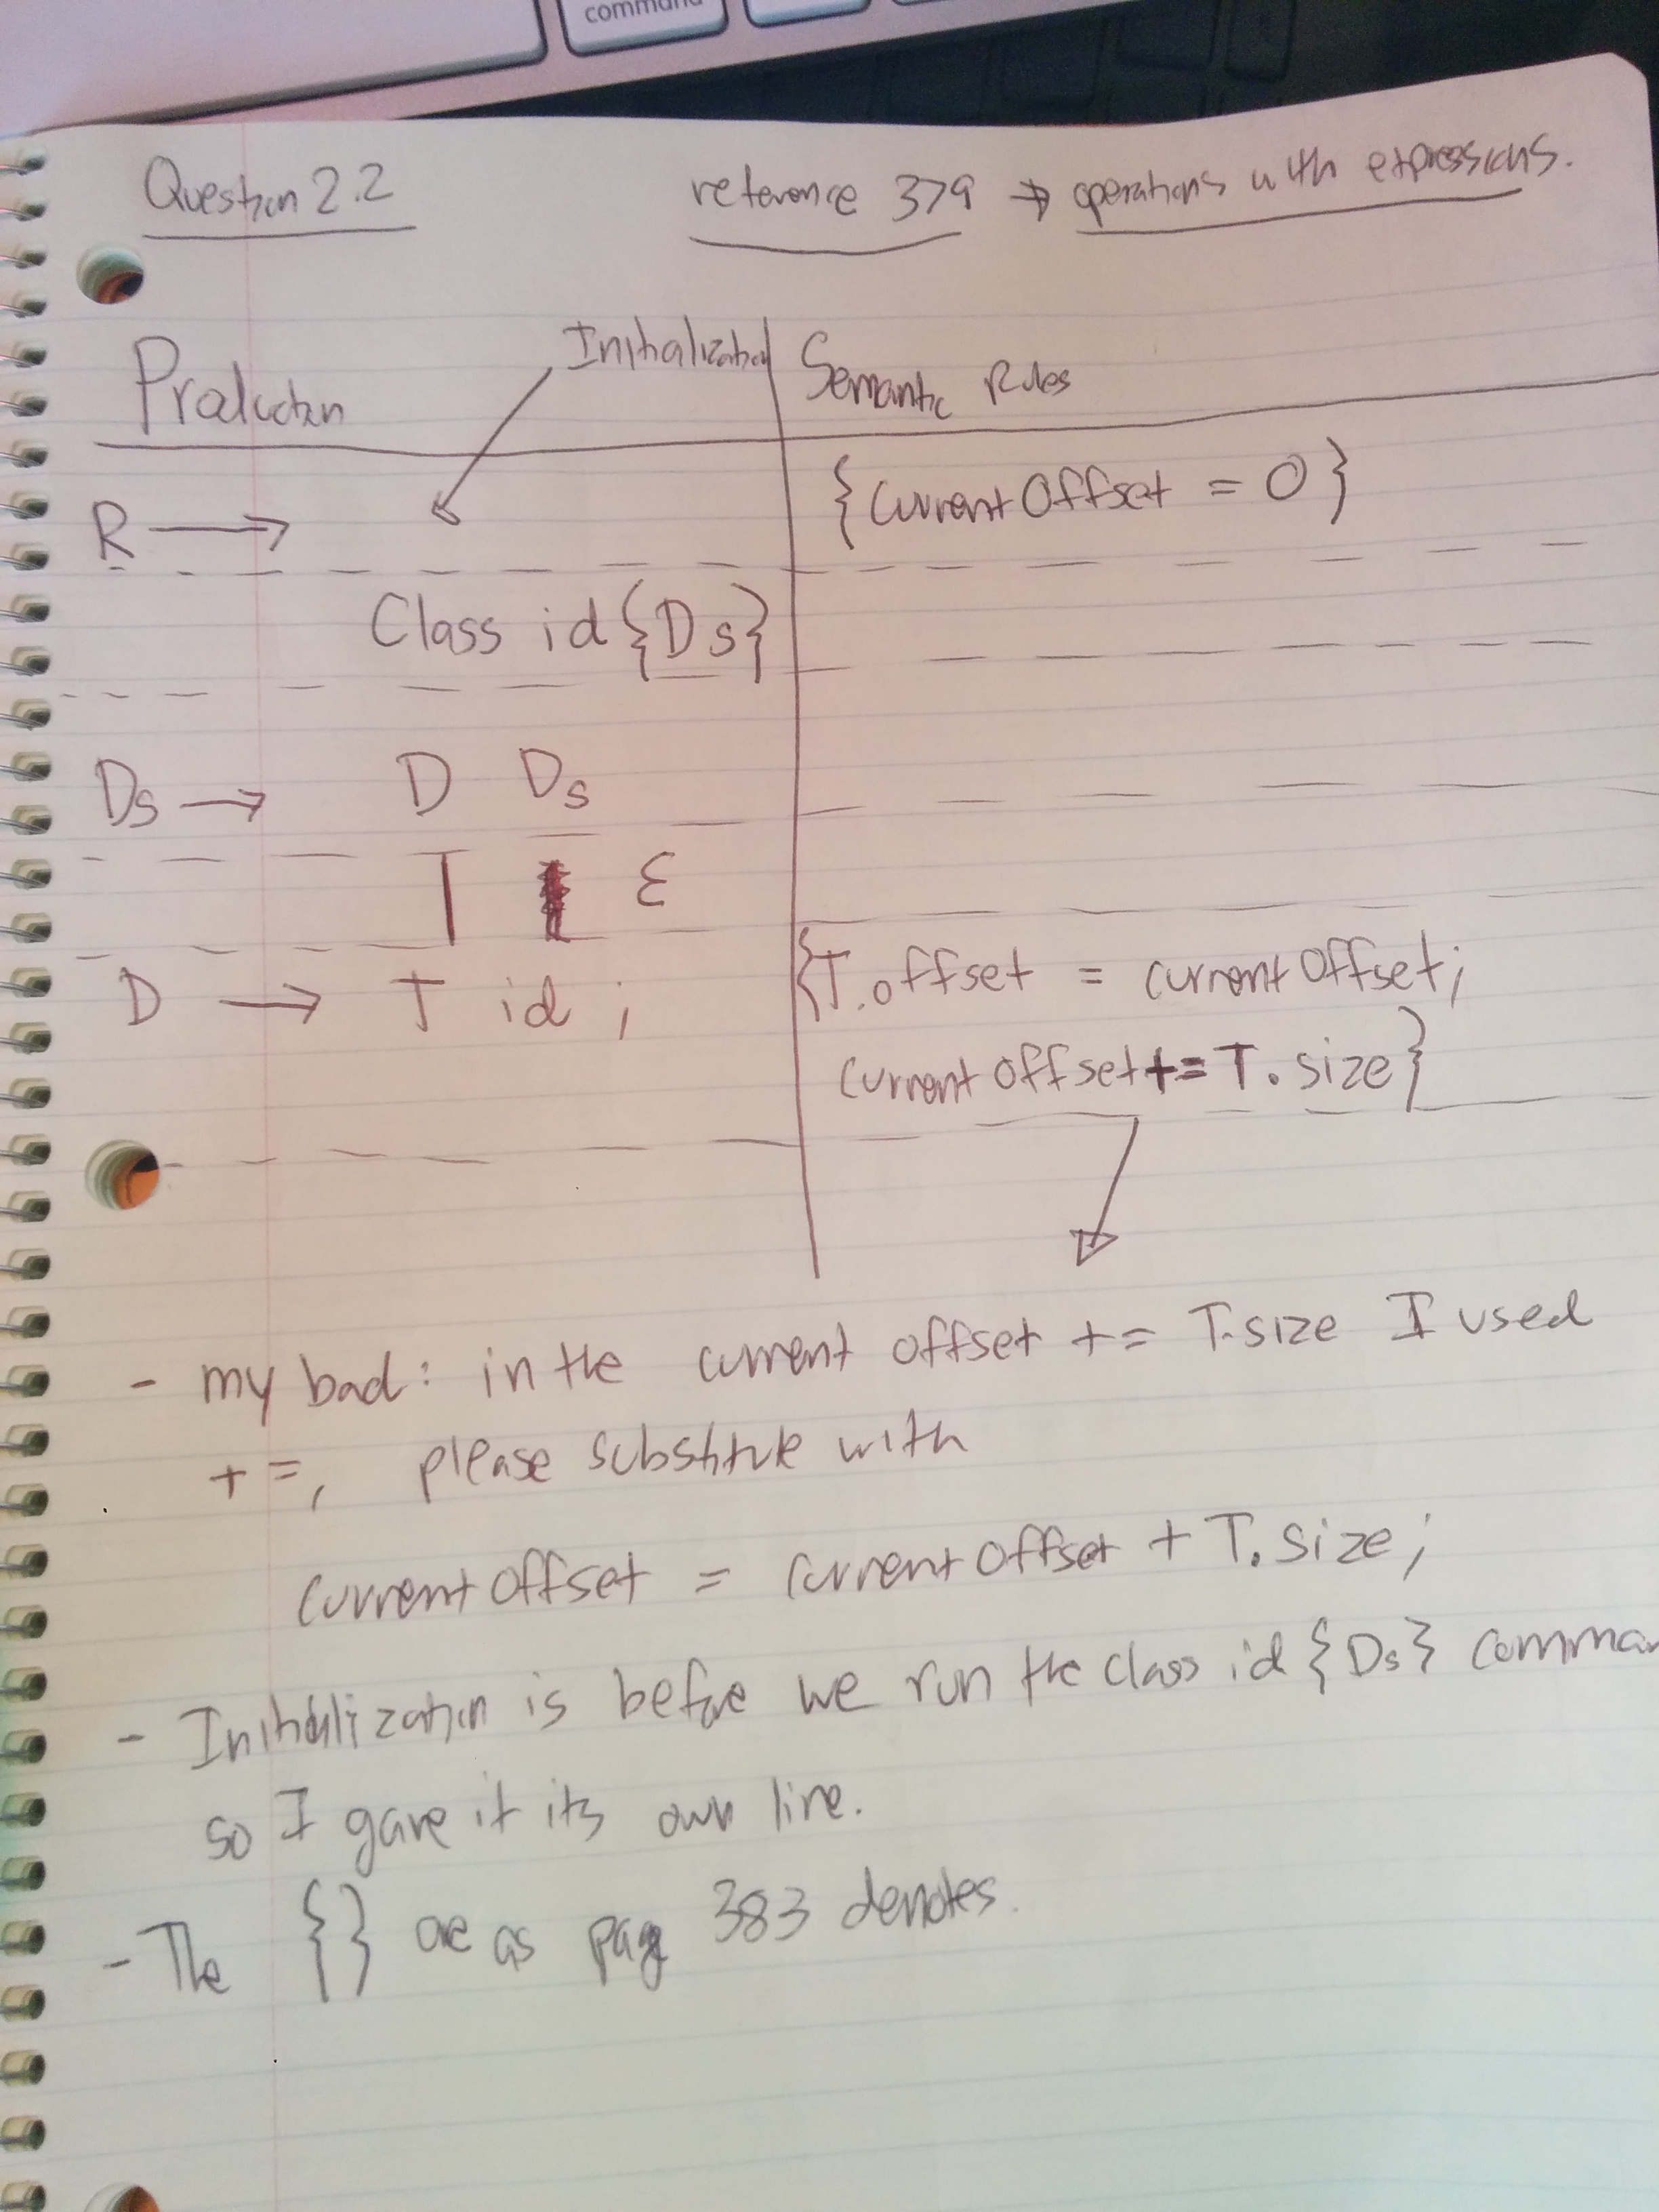 command
Question 2.2 reference 379 → operations with expressions.
Initialization
Production Semantic Rules
R → {currentOffset = 0}
Class id {Ds}
Ds → D Ds
| ε
D → T id ; {T.offset = currentOffset;
currentOffset += T.size}
- my bad: in the current offset += T.size I used
+=, please substitute with
currentOffset = currentOffset + T.size;
- Initialization is before we run the class id {Ds} comman
so I gave it its own line.
- The {} are as page 383 denotes.